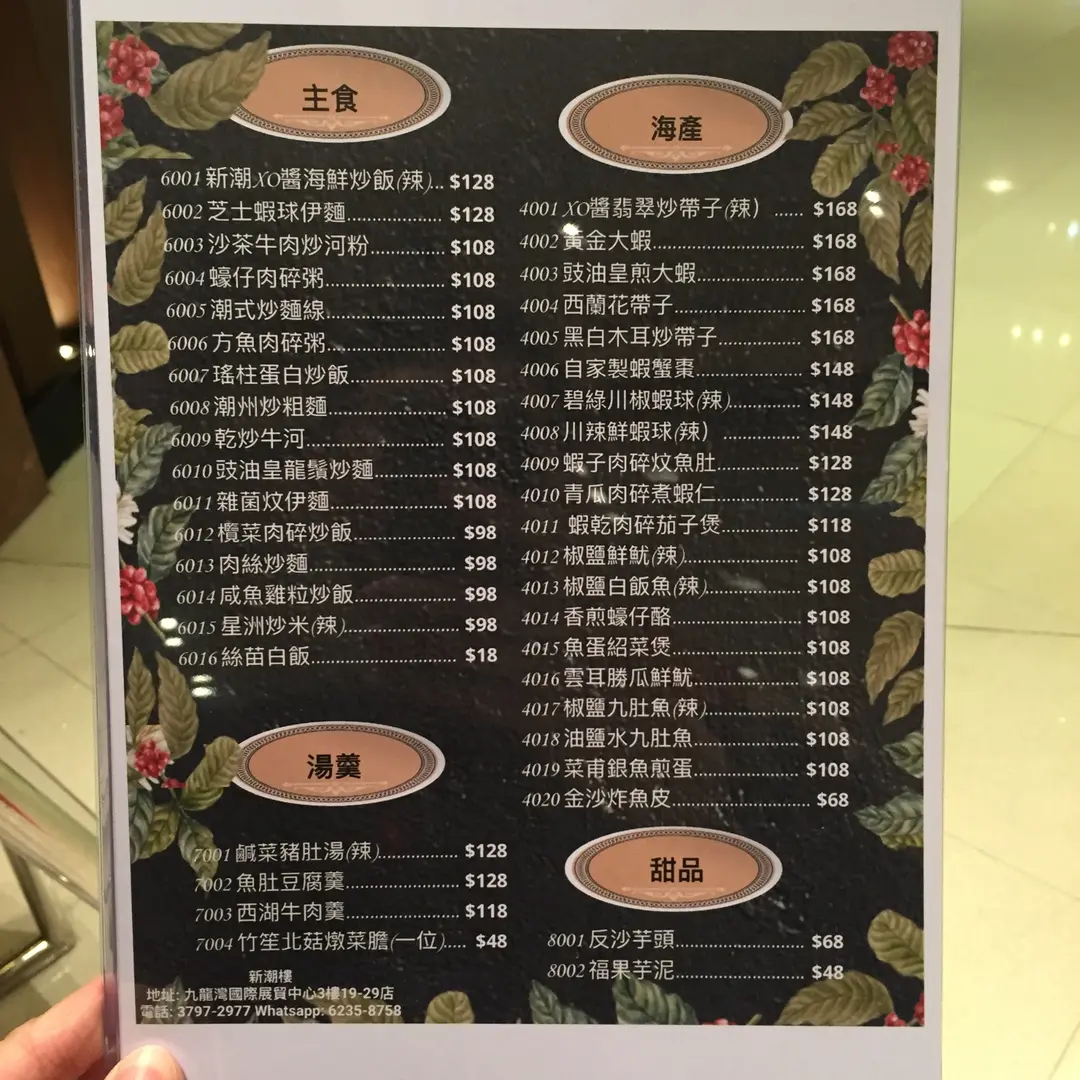 主食
6001 新潮XO醬海鮮炒飯(辣)... $128
6002 芝士蝦球伊麵................... $128
6003 沙茶牛肉炒河粉............... $108
6004 蠔仔肉碎粥........................ $108
6005 潮式炒麵線........................ $108
6006 方魚肉碎粥........................ $108
6007 瑤柱蛋白炒飯................... $108
6008 潮州炒粗麵........................ $108
6009 乾炒牛河............................ $108
6010 豉油皇龍鬚炒麵............... $108
6011 雜菌炆伊麵........................ $108
6012 欖菜肉碎炒飯...................... $98
6013 肉絲炒麵............................... $98
6014 咸魚雞粒炒飯...................... $98
6015 星洲炒米(辣)........................ $98
6016 絲苗白飯............................. $18
湯羹
7001 鹹菜豬肚湯(辣)................ $128
7002 魚肚豆腐羹....................... $128
7003 西湖牛肉羹....................... $118
7004 竹笙北菇燉菜膽(一位)..... $48
新潮樓
地址: 九龍灣國際展貿中心3樓19-29店
電話: 3797-2977 Whatsapp: 6235-8758
海產
4001 XO醬翡翠炒帶子(辣) ...... $168
4002 黃金大蝦............................... $168
4003 豉油皇煎大蝦...................... $168
4004 西蘭花帶子.......................... $168
4005 黑白木耳炒帶子................. $168
4006 自家製蝦蟹棗...................... $148
4007 碧綠川椒蝦球(辣).............. $148
4008 川辣鮮蝦球(辣) ................ $148
4009 蝦子肉碎炆魚肚................. $128
4010 青瓜肉碎煮蝦仁................. $128
4011 蝦乾肉碎茄子煲................ $118
4012 椒鹽鮮魷(辣)....................... $108
4013 椒鹽白飯魚(辣)................... $108
4014 香煎蠔仔酪.......................... $108
4015 魚蛋紹菜煲.......................... $108
4016 雲耳勝瓜鮮魷...................... $108
4017 椒鹽九肚魚(辣)................... $108
4018 油鹽水九肚魚...................... $108
4019 菜甫銀魚煎蛋...................... $108
4020 金沙炸魚皮............................. $68
甜品
8001 反沙芋頭........................... $68
8002 福果芋泥........................... $48